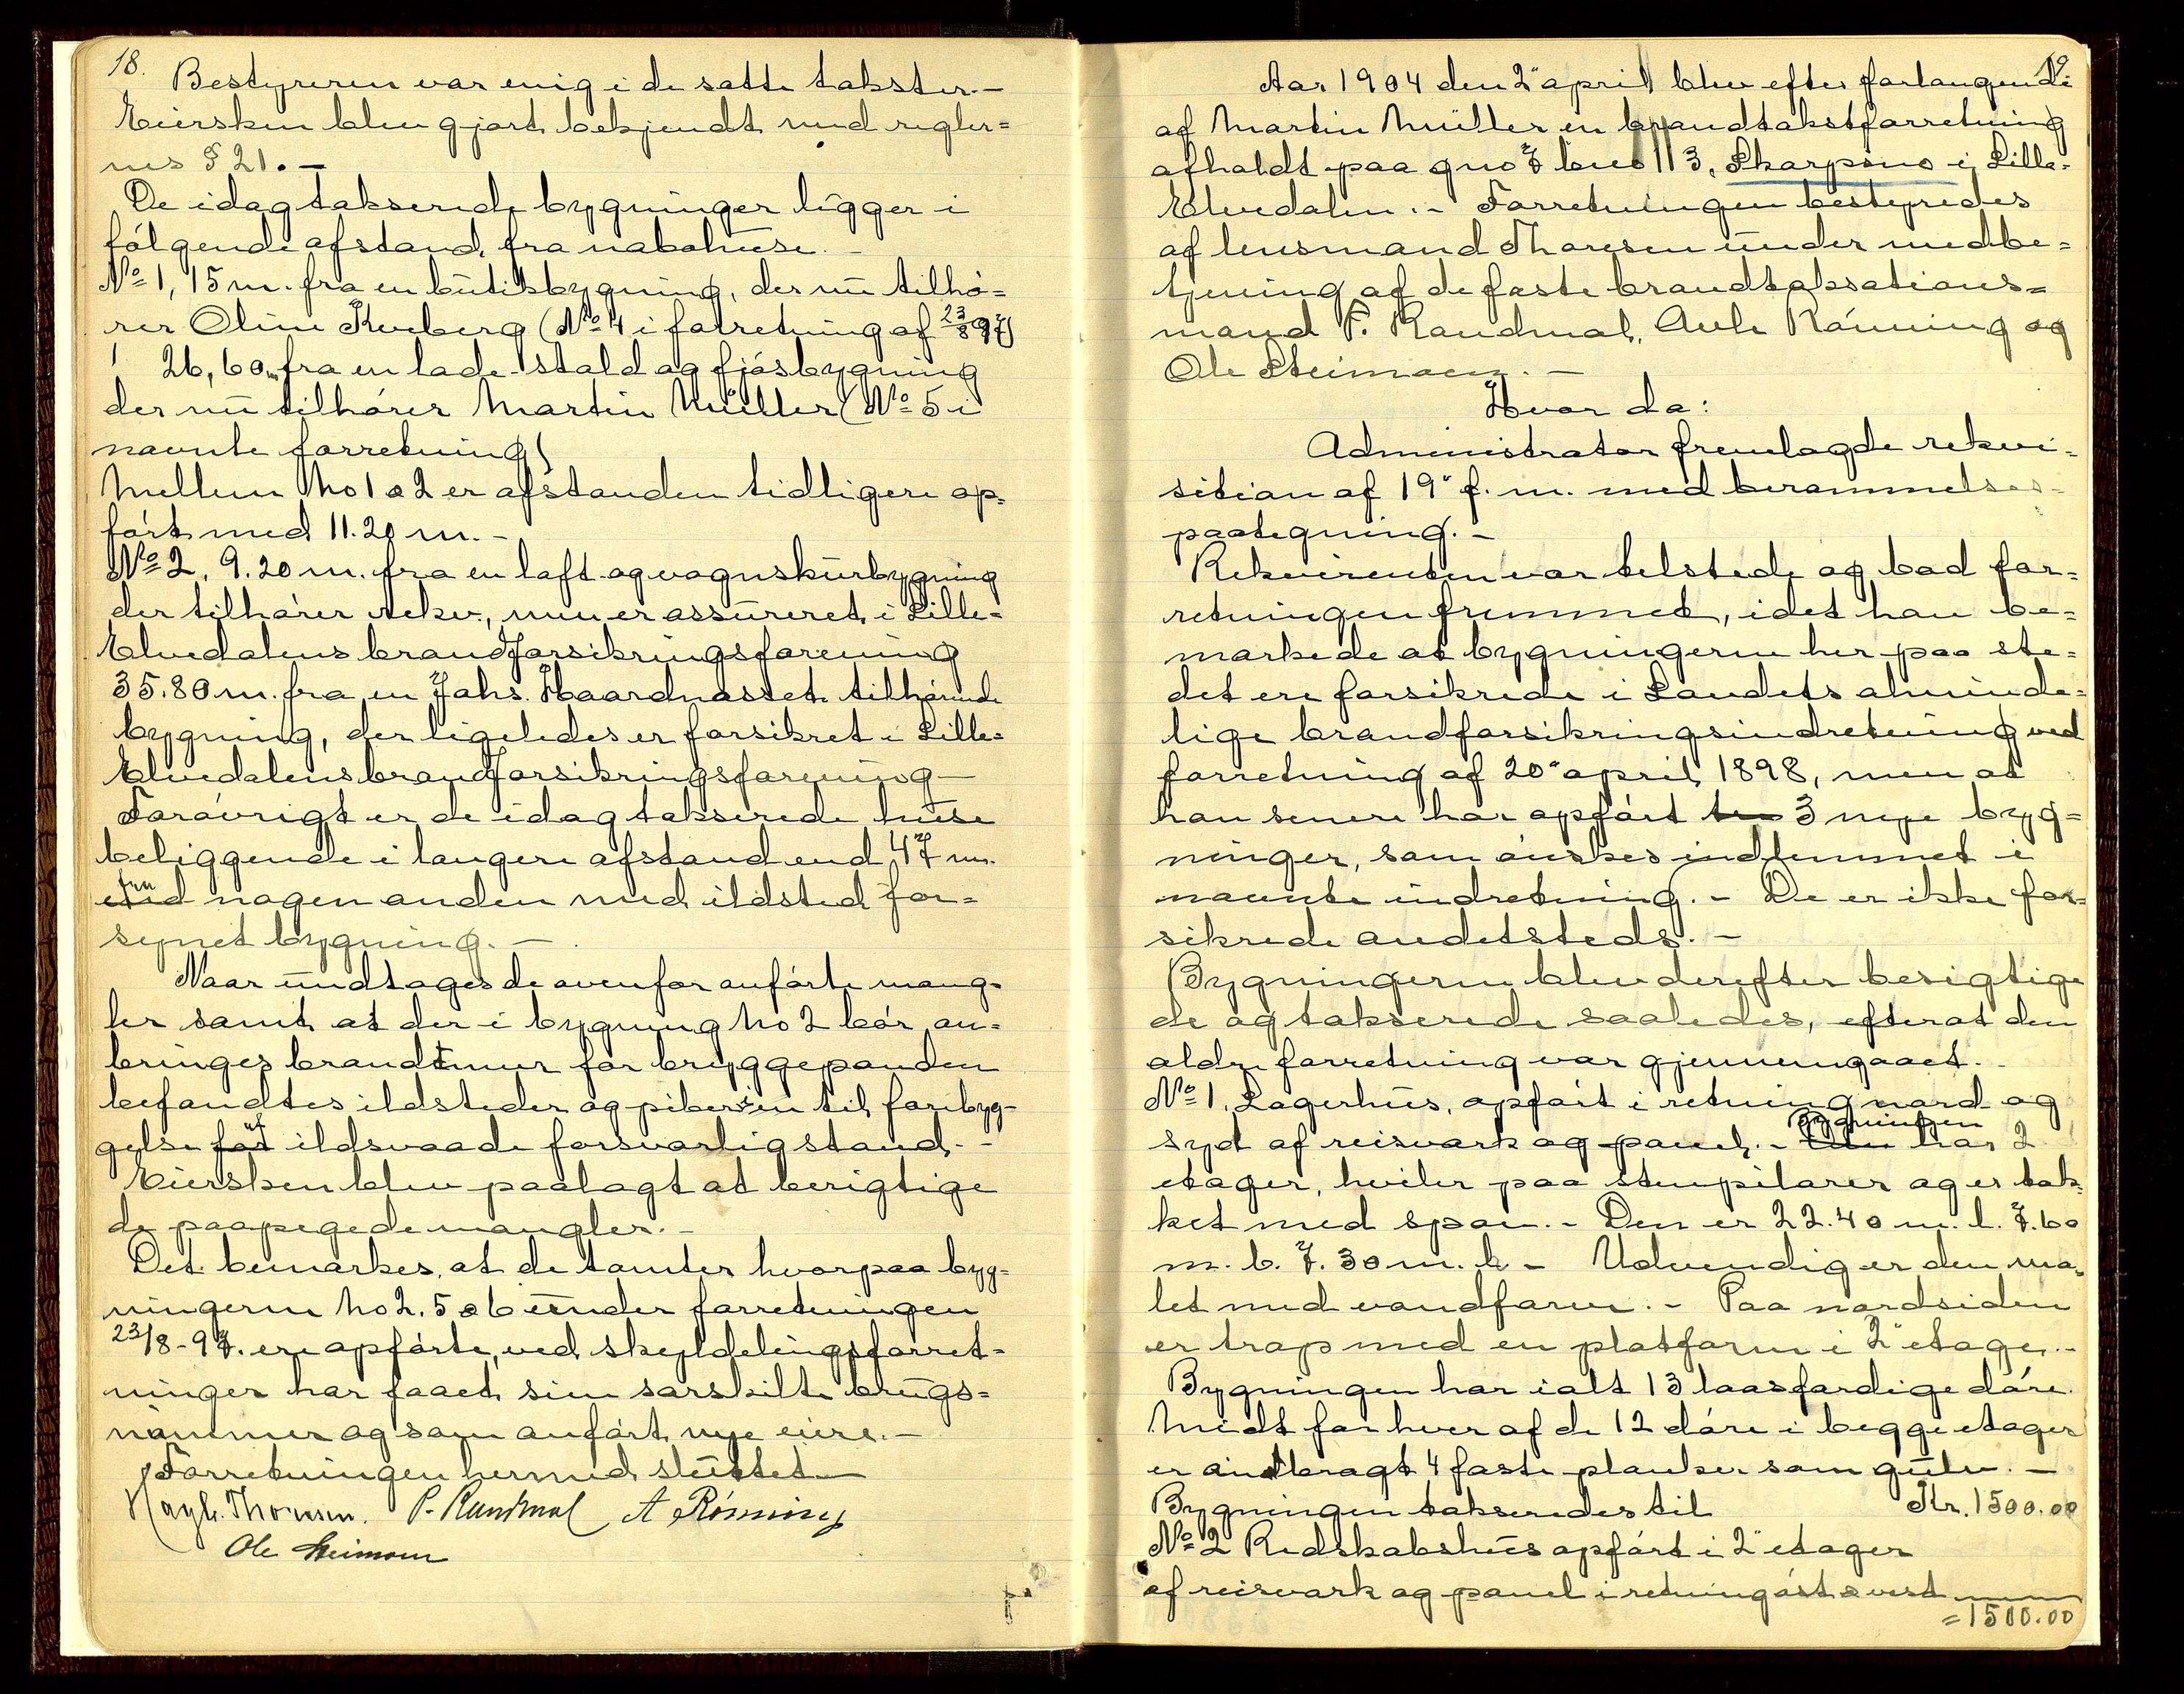 18.
Bestyreren var enig i de satte takster. –
Eiersken blev gjort bekjendt med regler=
nes § 21. –
De idag takserede bygninger ligger i
følgende afstand fra nabohuse. –
No 1, 15 m. fra en butikbygning, der nu tilhø=
rer Oline Kveberg (No 4 i forretning af 23/8 97)
26,60 m fra en lade stald og fjøsbygning
der nu tilhører Martin Müller (No 5 i
nævnte forretning)
Mellem No 1 a 2 er afstanden tidligere op=
ført med 11.20 m. –
No 2, 9.20 m. fra en loft og vognskurbygning
der tilhører rekv., men er assureret i Lille=
Elvedalens brandforsikringsforening
35.80 m. fra en Johs. Haardnasset tilhørende
bygning, der ligeledes er forsikret i Lille=
Elvedalens brandforsikringsforening –
Forøvrigt er de idag takserede huse
beliggende i længere afstand end 47 m.
fra nogen anden med ildsted for=
synet bygning. –
Naar undtages de ovenfor anførte mang=
ler samt at der i bygning No 2 bør an=
bringes brandtmur for bryggepanden
befandtes ildsteder og piber i en til forebyg=
gelse af ildsvaade forsvarlig stand. –
Eiersken blev paalagt at berigtige
de paapegede mangler. –
Det bemærkes, at de tomter hvorpaa byg=
ningerne No 2. 5 a 6 under forretningen
23/8 - 97. ere opførte, ved skyldelingsforret=
ninger har faaet sine særskilte brugs=
nummer og som anført nye eiere. –
Forretningen hermed sluttet –
Hagb. Thoresen. P. Randmæl A Rønning
Ole Steimoen
19
Aar 1904 den 2" april blev efter forlangende
af Martin Müller en brandtakstforretning
afholdt paa gno 7 bno 113, Skarpsno i Lille=
Elvedalen. – Forretningen bestyredes
af lensmand Thoresen under medbe=
tjening af de faste brandtaksations=
mænd P. Randmæl, Avle Rønning og
Ole Steimoen. –
Hvor da:
Administrator fremlagde rekvi=
sition af 19" f. m. med berammelses=
paategning. –
Rekvirenten var tilstede og bad for=
retningen fremmet, idet han be=
mærkede at bygningerne her paa ste=
det ere forsikrede i Landets alminde=
lige brandforsikringsindretning ved
forretning af 20" april 1898, men at
han senere har opført 3 nye byg=
ninger, som ønskes indlemmet i
nævnte indretning. – De er ikke for=
sikrede andetsteds. –
Bygningerne blev derefter besigtige
de og takserede saaledes, efterat den
ældre forretning var gjennemgaaet. –
No 1, Lagerhus, opført i retning nord og
syd af reisværk og panel. – Bygningen har 2
etager, hviler paa stenpilarer og er tæk=
ket med spon. – Den er 22.40 m. l. 7.60
m. b. 7.30 m. h – Udvendig er den ma=
let med vandfarve. – Paa nordsiden
er trap med en platform i 2" etage. –
Bygningen har ialt 13 laasfærdige døre.
Midt for hver af de 12 døre i begge etager
er anbragt 4 faste planker som gulv. –
Bygningen takseredes til Kr. 1500.00
No 2 Redskabshus opført i 2" etager
af reisværk og panel i retning øst a vest
= 1500.00